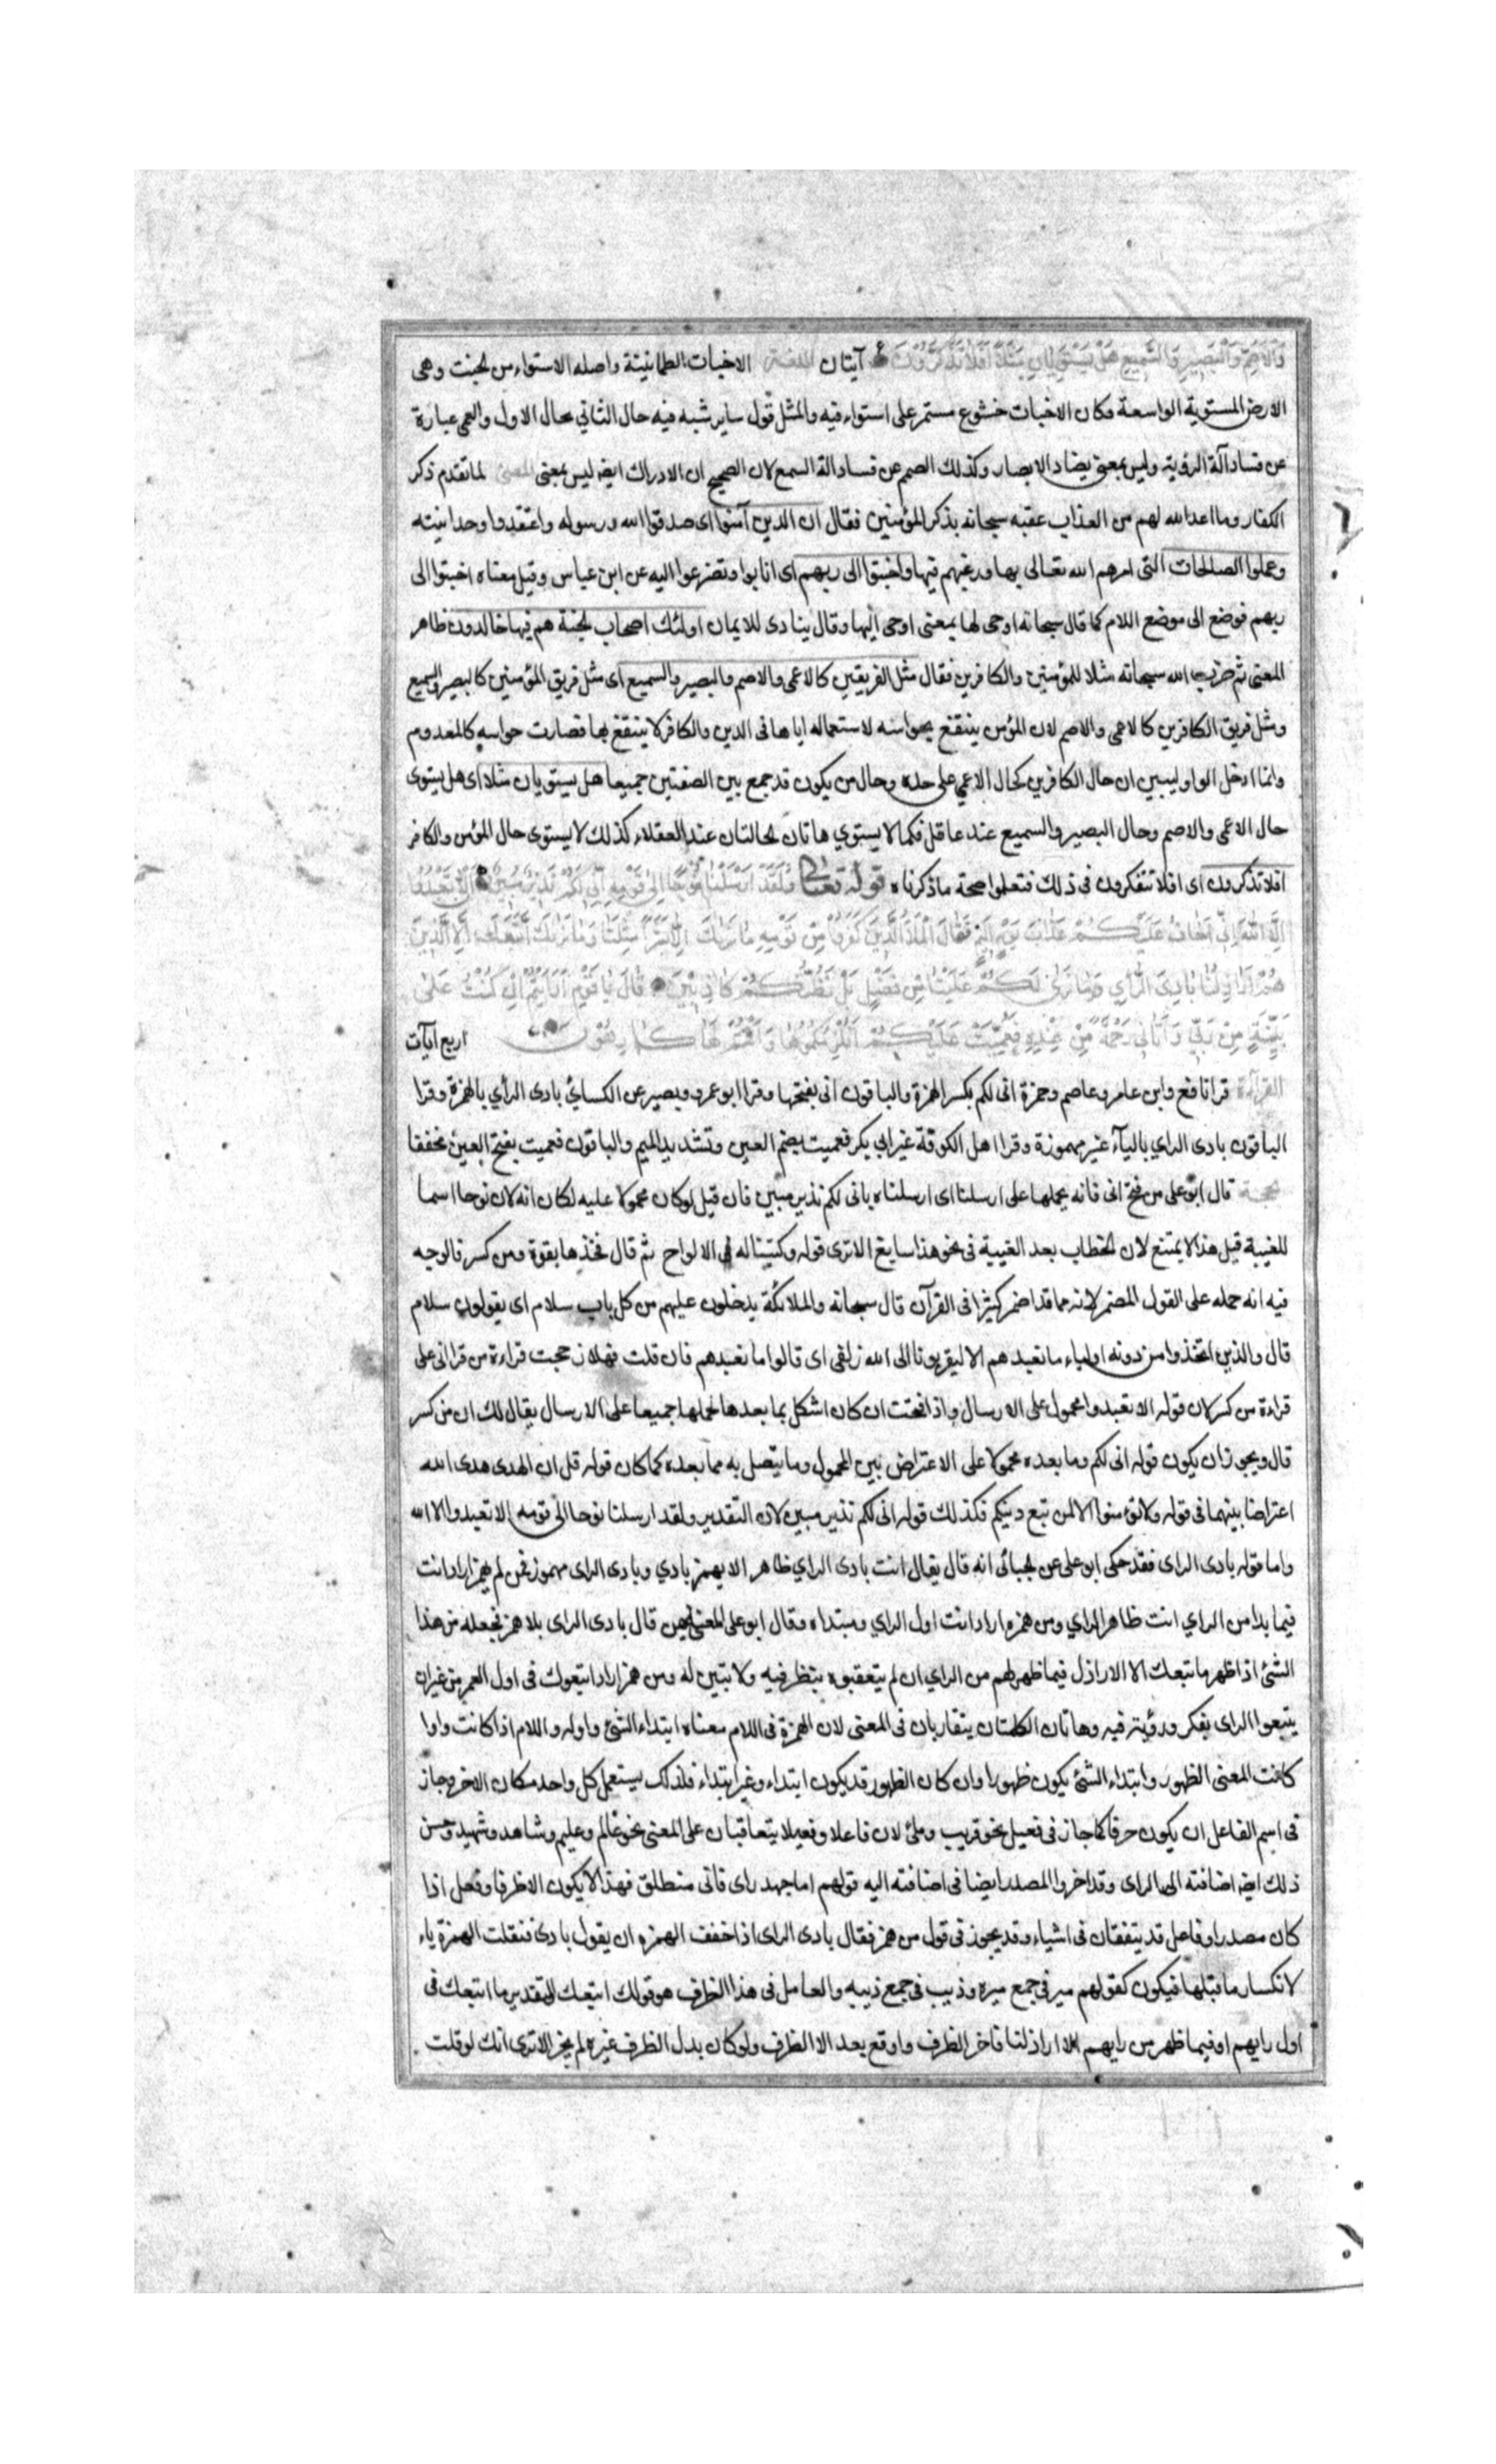 وَالْأَصَمِّ وَالْبَصِيرِ وَالسَّمِيعِ هَلْ يَسْتَوِيَانِ مَثَلًا أَفَلَا تَذَكَّرُونَ آيتان اللغة الاخبات الطمانينة واصله الاستواء من الخبت وهى
الارض المستوية الواسعة فكان الاخبات خشوع مستمر على استواء فيه والمثل قول ساير شبه فيه حال الثاني بحال الاول والعمى عبارة
عن فساد آلة الرؤية وليس بمعنى يضاد الابصار وكذلك الصمم عن فساد آلة السمع لان الصحيح ان الادراك ايضا ليس بمعنى المعنى لما تقدم ذكر
الكفار وما اعد الله لهم من العذاب عقبه سبحانه بذكر المؤمنين فقال ان الذين آمنوا اى صدقوا الله ورسوله واعتقدوا وحدانيته
وعملوا الصالحات التى امرهم الله تعالى بها ورغبهم فيها واخبتوا الى ربهم اى انابوا وتضرعوا اليه عن ابن عباس وقيل معناه اخبتوا الى
ربهم فوضع الى موضع اللام كما قال سبحانه اوحى لها بمعنى اوحى اليها وقال ينادى للايمان اولئك اصحاب الجنة هم فيها خالدون ظاهر
المعنى ثم ضرب الله سبحانه مثلا للمؤمنين والكافرين فقال مثل الفريقين كالاعمى والاصم والبصير والسميع اى مثل فريق المؤمنين كالبصير والسميع
ومثل فريق الكافرين كالاعمى والاصم لان المؤمن ينتفع بحواسه لاستعماله اياها فى الدين والكافر لا ينتفع بها فصارت حواسه كالمعدوم
وانما ادخل الواو ليبين ان حال الكافرين كحال الاعمى على حده وحال من يكون قد جمع بين الصفتين جميعا هل يستويان مثلا اى هل يستوى
حال الاعمى والاصم وحال البصير والسميع عند عاقل فكما لا يستوي هاتان الحالتان عند العقلاء كذلك لا يستوى حال المؤمن والكافر
افلا تذكرون اى افلا تتفكرون فى ذلك فتعلموا صحة ما ذكرناه قوله تعالى وَلَقَدْ أَرْسَلْنَا نُوحًا إِلَى قَوْمِهِ إِنِّي لَكُمْ نَذِيرٌ مُبِينٌ أَنْ لَا تَعْبُدُوا
إِلَّا اللَّهَ إِنِّي أَخَافُ عَلَيْكُمْ عَذَابَ يَوْمٍ أَلِيمٍ فَقَالَ الْمَلَأُ الَّذِينَ كَفَرُوا مِنْ قَوْمِهِ مَا نَرَاكَ إِلَّا بَشَرًا مِثْلَنَا وَمَا نَرَاكَ اتَّبَعَكَ إِلَّا الَّذِينَ
هُمْ أَرَاذِلُنَا بَادِيَ الرَّأْيِ وَمَا نَرَى لَكُمْ عَلَيْنَا مِنْ فَضْلٍ بَلْ نَظُنُّكُمْ كَاذِبِينَ قَالَ يَا قَوْمِ أَرَأَيْتُمْ إِنْ كُنْتُ عَلَى
بَيِّنَةٍ مِنْ رَبِّي وَآتَانِي رَحْمَةً مِنْ عِنْدِهِ فَعُمِّيَتْ عَلَيْكُمْ أَنُلْزِمُكُمُوهَا وَأَنْتُمْ لَهَا كَارِهُونَ اربع آيات
القراءة قرا نافع وابن عامر وعاصم وحمزة انى لكم بكسر الهمزة والباقون انى بفتحها وقرا ابو عمرو ونصير عن الكسائي بادئ الرأي بالهمزة وقرا
الباقون بادى الراي بالياء غير مهموزة وقرا اهل الكوفة غير ابي بكر فعميت بضم العين وتشديد الميم والباقون فعميت بفتح العين مخففا
الحجة قال ابو على من فتح انى فانه يحملها على ارسلنا اى ارسلناه بانى لكم نذير مبين فان قيل لو كان محمولا عليه لكان انه لان نوحا اسما
للغيبة قيل هذا لا يمتنع لان الخطاب بعد الغيبة فى نحو هذا سايغ الا ترى قوله وكتبنا له فى الالواح ثم قال فخذها بقوة ومن كسر فالوجه
فيه انه حمله على القول المضمر لانه مما قد اضمر كثيرا فى القرآن قال سبحانه والملائكة يدخلون عليهم من كل باب سلام اى يقولون سلام
قال والذين اتخذوا من دونه اولياء ما نعبدهم الا ليقربونا الى الله زلفى اى قالوا ما نعبدهم فان قلت فهلا رجحت قراءة من قرا انى على
قراءة من كسر لان قوله الا تعبدوا محمول على الارسال واذا فتحت ان كان اشكل بما بعدها لحملها جميعا على الارسال يقال لك ان من كسر
قال ويجوز ان يكون قوله انى لكم وما بعده محمولا على الاعتراض بين المحمول وما يتصل به مما بعده كما كان قوله قل ان الهدى هدى الله
اعتراضا بينهما فى قوله ولا تؤمنوا الا لمن تبع دينكم فكذلك قوله انى لكم نذير مبين لان التقدير ولقد ارسلنا نوحا الى قومه الا تعبدوا الا الله
واما قوله بادى الراى فقد حكى ابو على عن الجبائى انه قال يقال انت بادى الراي ظاهر الا يهمز بادي وبادى الراى مهموز فمن لم يهمز اراد انت
فيما بدا من الراي انت ظاهر الراي ومن همزه اراد انت اول الراي ومبتداه وقال ابو على المعنى فيمن قال بادى الراى بلا همز فجعله من هذا
الشئ اذا ظهر ما تبعك الا الاراذل فيما ظهر لهم من الراي ان لم يتعقبوه بنظر فيه ولا تبين له ومن همز اراد اتبعوك فى اول العمر من غير ان
يتبعوا الراى بفكر ورؤية فيه وهاتان الكلمتان يتقاربان فى المعنى لان الهمزة فى اللام معناه ابتداء الشئ واوله واللام اذا كانت واوا
كانت المعنى الظهور وابتداء الشئ يكون ظهورا وان كان الظهور قد يكون ابتداء وغير ابتداء فلذلك يستعمل كل واحد مكان الاخر وجاز
فى اسم الفاعل ان يكون حرفا كما جاز فى فعيل نحو قريب وملئ لان فاعلا وفعيلا يتعاقبان على المعنى نحو عالم وعليم وشاهد وشهيد وحسن
ذلك ايضا اضافته الى الراى وقد اخروا المصدر ايضا فى اضافته اليه قولهم اما جهد راى فانى منطلق فهذا لا يكون الا ظرفا وفعل اذا
كان مصدرا وفاعل قد يتفقان فى اشياء وقد يجوز فى قول من همز فقال بادى الراى اذا خفف الهمزه ان يقول بادى فنقلت الهمزة ياء
لانكسار ما قبلها فيكون كقولهم مير فى جمع ميره وذيب فى جمع ذيبه والعامل فى هذا الظرف هو قولك اتبعك التقدير ما اتبعك فى
اول رايهم او فيما ظهر من رايهم الا اراذلنا فاخر الظرف واوقع بعد الا الظرف ولو كان بدل الظرف غيره لم يجز الا ترى انك لو قلت